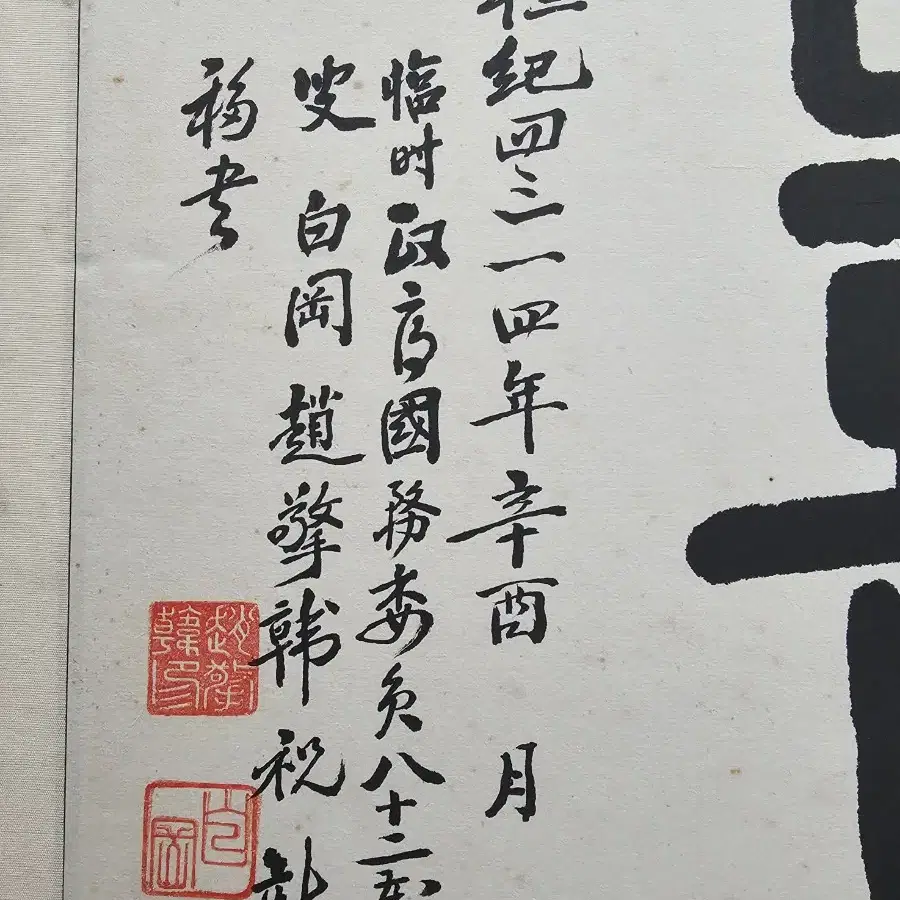 紀四三一四年辛酉 月
臨时政府國務委員八十二
叟 白岡 趙擎韓 祝
書
趙擎韓印
白岡